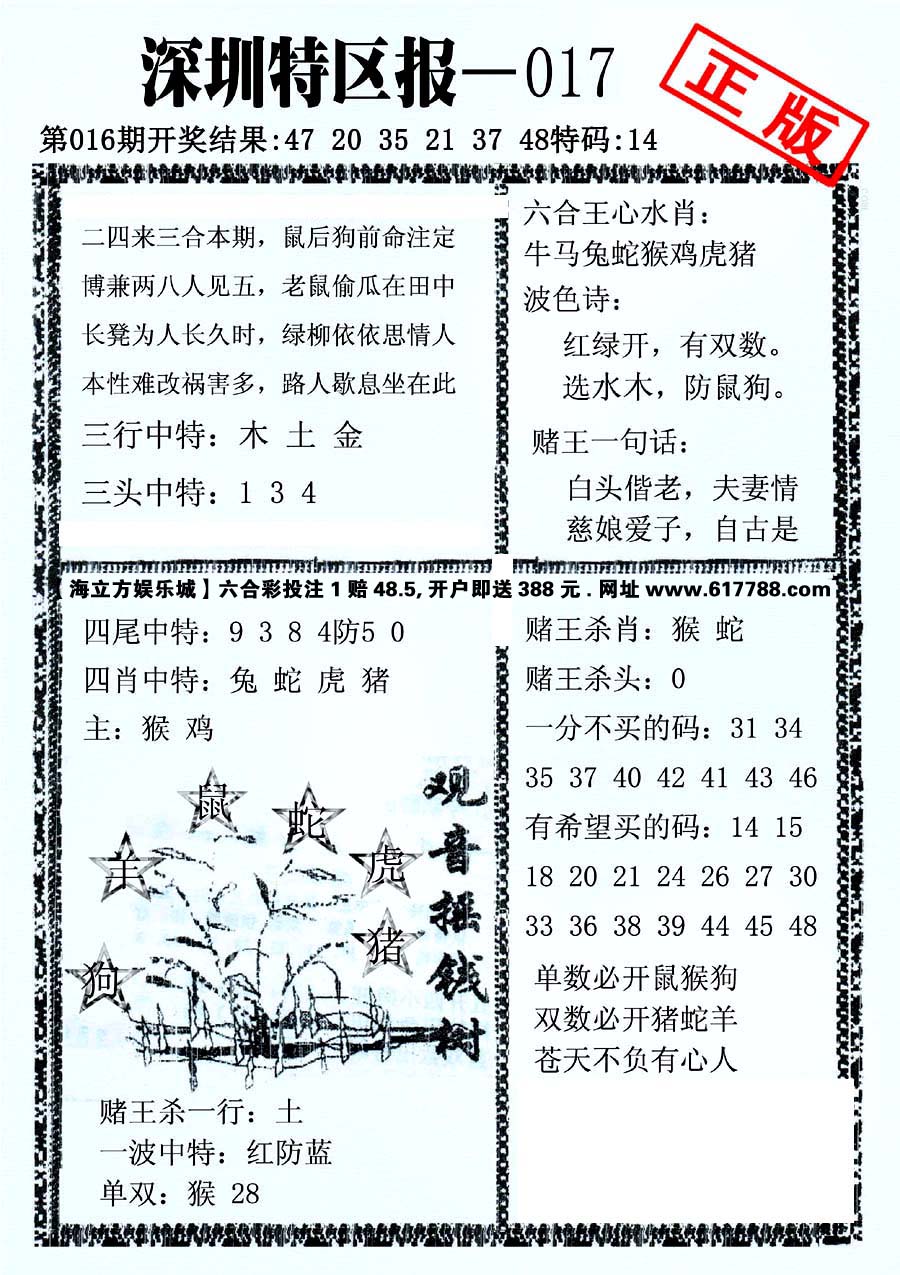 深圳特区报—017
正版
第016期开奖结果:47 20 35 21 37 48特码:14
二四来三合本期，鼠后狗前命注定
博兼两八人见五，老鼠偷瓜在田中
长凳为人长久时，绿柳依依思情人
本性难改祸害多，路人歇息坐在此
三行中特：木 土 金
三头中特：1 3 4
六合王心水肖：
牛马兔蛇猴鸡虎猪
波色诗：
红绿开，有双数。
选水木，防鼠狗。
赌王一句话：
白头偕老，夫妻情
慈娘爱子，自古是
【海立方娱乐城】六合彩投注1赔48.5,开户即送388元.网址www.617788.com
四尾中特：9 3 8 4防5 0
四肖中特：兔 蛇 虎 猪
主：猴 鸡
鼠
蛇
羊
虎
猪
狗
观音摇钱树
赌王杀一行：土
一波中特：红防蓝
单双：猴 28
赌王杀肖：猴 蛇
赌王杀头：0
一分不买的码：31 34
35 37 40 42 41 43 46
有希望买的码：14 15
18 20 21 24 26 27 30
33 36 38 39 44 45 48
单数必开鼠猴狗
双数必开猪蛇羊
苍天不负有心人